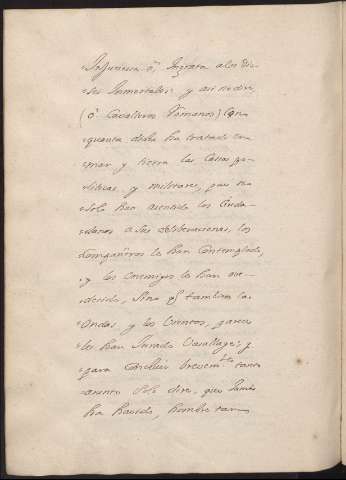 Injuriosa ó, Ingrata a los Dio-
ses Inmortales: y asi no dire,
(ó Cavalleros Romanos) con
quanta dicha ha tratado en
mar y tierra las cosas po-
liticas, y militares, pues no
solo han asentido los Ciuda-
danos a sus deliberaciones, los
Compañeros le han Contemplado,
y los Enemigos le han obe-
decido, Sino q̃ tambien las
Ondas, y los Vientos, parece
les han Jurado Vasallage: y
para Concluir brevem.te tanto
asunto solo dire, que Jamas
ha havido, hombre tan